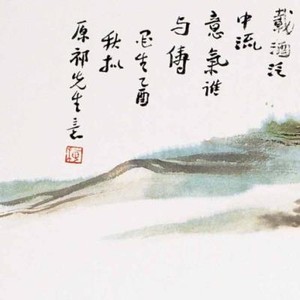 載酒泛
中流
意氣誰
与儔
乙酉
秋拟
原祁先生意